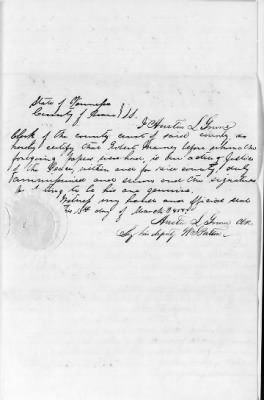 State of Tennessee
County of } SS.
I Austin L
clerk of the county court of said county do
hereby certify that Robert before whom the
forgoing papers was had, is an acting Justice
of the Peace, within and for said county, duly
commissioned and sworn and the signature
to be his are genuine.
Witness my hand and official seal
this day of March
Austin L Clk
By his deputy